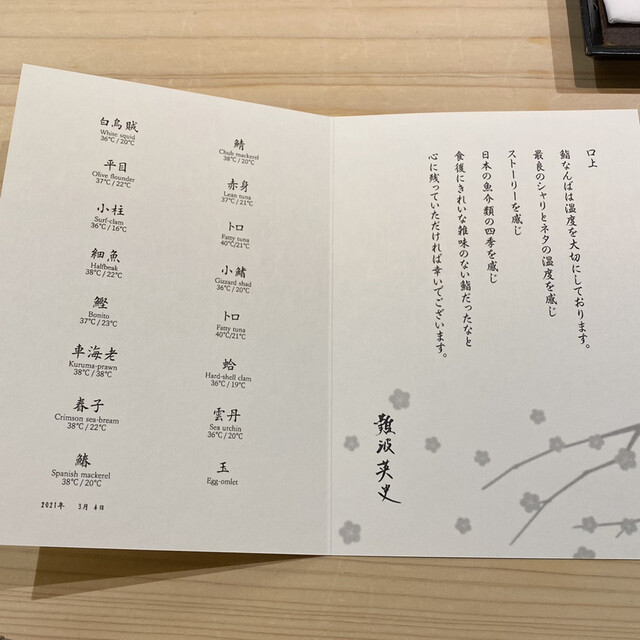 白烏賊
White squid
36℃/20℃
平目
Olive flounder
37℃/22℃
小柱
Surf-clam
36℃/16℃
細魚
Halfbeak
38℃/22℃
鰹
Bonito
37℃/23℃
車海老
Kuruma-prawn
38℃/38℃
春子
Crimson sea-bream
38℃/22℃
鰆
Spanish mackerel
38℃/20℃
鯖
Chub mackerel
38℃/20℃
赤身
Lean tuna
37℃/21℃
トロ
Fatty tuna
40℃/21℃
小鰭
Gizzard shad
36℃/20℃
トロ
Fatty tuna
40℃/21℃
蛤
Hard-shell clam
36℃/19℃
雲丹
Sea urchin
36℃/20℃
玉
Egg-omlet
2021年 3月 4日
口上
鮨なんばは温度を大切にしております。
最良のシャリとネタの温度を感じ
ストーリーを感じ
日本の魚介類の四季を感じ
食後にきれいな雑味のない鮨だったなと
心に残っていただければ幸いでございます。
難波英史